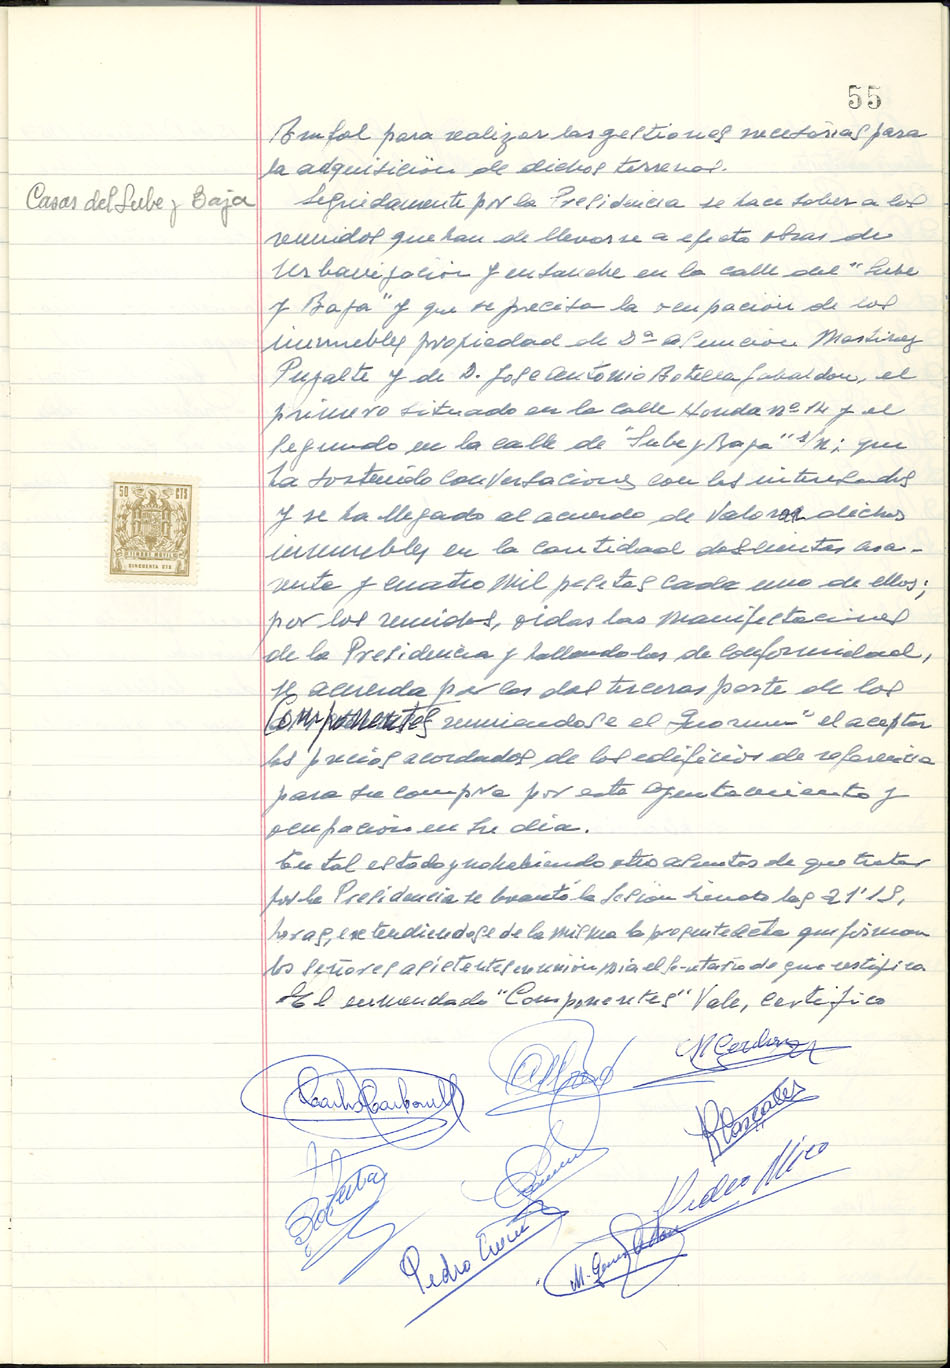 55
Amfol para realizar las gestiones necesarias para
la adquisición de dichos terrenos.
Casas del Sube y Baja
Seguidamente por la Presidencia se hace saber a los
reunidos que han de llevarse a efecto obras de
Urbanización y ensanche en la calle del "Sube
y Baja" y que se precisa la ocupación de los
inmuebles propiedad de Dª Asunción Martinez
Pujalte y de D. Jose Antonio Botella Gabaldon, el
primero situado en la calle Honda nº 14 y el
segundo en la calle de "Sube y Baja" s/n; que
ha sostenido conversaciones con los interesados
y se ha llegado al acuerdo de valorar dichos
inmuebles en la cantidad doscientas
y cuatro mil pesetas cada uno de ellos;
por los reunidos, oidas las manifestaciones
de la Presidencia y hallandolas de conformidad,
se acuerda por las dos terceras parte de los
Componentes reuniendose el Quorum" el aceptar
los precios acordados de los edificios de referencia
para su compra por este Ayuntamiento y
ocupación en su dia.
En tal estado y no habiendo otro asuntos de que tratar
por la Presidencia se levantó la sesion siendo las 21'15,
horas, extendiendose de la misma la presente Acta que firman
los señores asistentes en union mia el Secretario de que certifica
El enmendado "Componentes" Vale, certifico
50 CTS
TIMBRE MOVIL
CINCUENTA CTS
Carlos Carbonell
Botella
Pedro
Pedro Mico